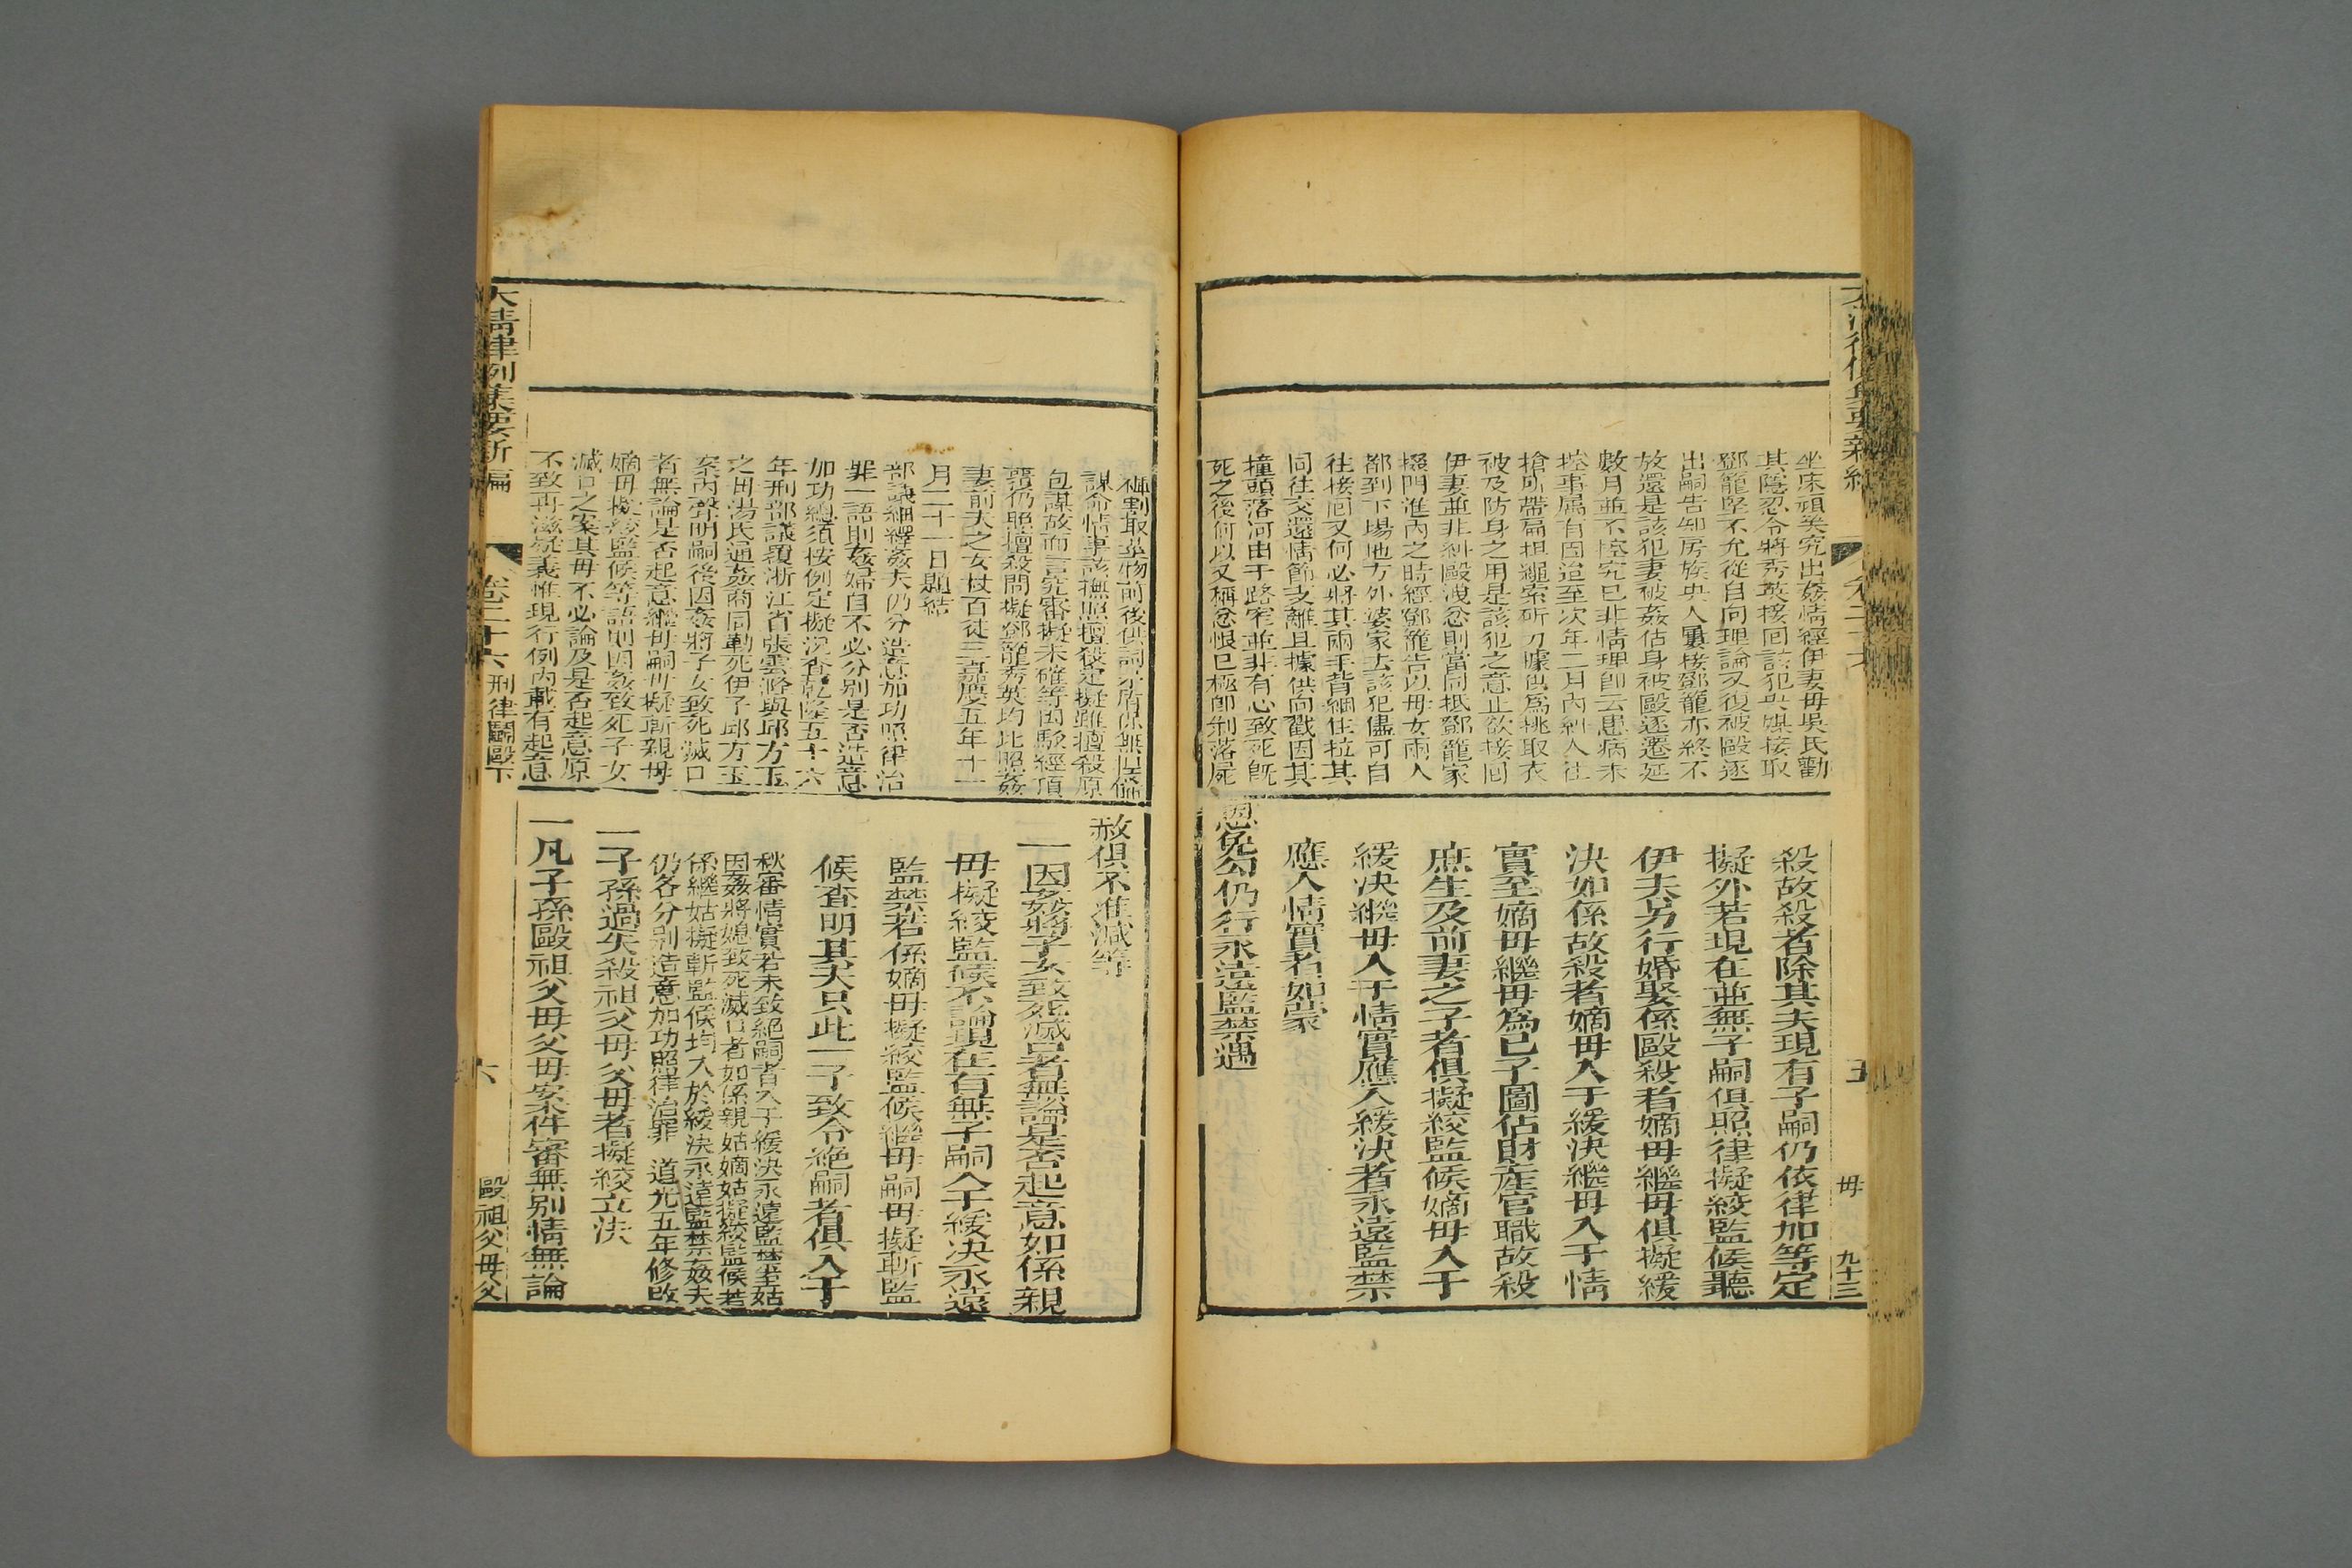 大清律例集要新編
卷二十六
五
毋
九十三
坐床頭矣究出姦情經伊妻母吳氏勸
其隱忍令將秀英接回該犯央媒接取
鄧籠堅不允從自向理論又復被毆逐
出嗣告知房族央人屢接鄧籠亦終不
放還是該犯妻被姦佔身被毆逐遷延
數月並不控究已非情理卽云患病未
控事屬有因迨至次年二月內糾人往
搶所帶扁担繩索斫刀據供爲挑取衣
被及防身之用是該犯之意止欲接回
伊妻並非糾毆洩忿則當同抵鄧籠家
撥門進內之時經鄧籠告以母女兩人
都到下場地方外婆家去該犯儘可自
往接回又何必將其兩手背綑住拉其
同往交還情節支離且據供向戳因其
撞頭落河由于路窄並非有心致死旣
死之後何以又稱忿恨已極卽剁落屍
殺故殺者除其夫現有子嗣仍依律加等定
擬外若現在並無子嗣俱照律擬絞監候聽
伊夫另行婚娶係毆殺者嫡母繼母俱擬緩
決如係故殺者嫡母入于緩決繼母入于情
實至嫡母繼母爲己子圖佔財產官職故殺
庶生及前妻之子者俱擬絞監候嫡母入于
緩決繼母入于情實應入緩決者永遠監禁
應入情實者如蒙
恩免勾仍行永遠監禁遇
褲割取莖物前後供詞矛盾係無
謀命情事該撫照擅殺定擬雖擅殺原
包謀故而言究審擬未確等因駁經頂
覆仍照擅殺問擬鄧籠秀英均比照姦
妻前夫之女杖百徒三嘉慶五年十一
月二十一日題結
部議細繹姦夫仍分造意加功照律治
罪一語則姦婦自不必分別是否造意
加功總須按例定擬況查乾隆五十六
年刑部議覆浙江省張雲滁與邱方玉
之母湯氏通姦商同勒死伊子邱方玉
案內聲明嗣後因姦將子女致死滅口
者無論是否起意繼母嗣母擬斬親母
嫡母擬絞監候等語則因姦致死子女
滅口之案其母不必論及是否起意原
不致再滋疑義惟現行例內載有起意
赦俱不准減等
一因姦將子女致死滅口者無論是否起意如係親
母擬絞監候不論現在有無子嗣入于緩決永遠
監禁若係嫡母擬絞監候繼母嗣母擬斬監
候查明其夫只此一子致令絕嗣者俱入于
秋審情實若未致絕嗣者入于緩決永遠監禁至姑
因姦將媳致死滅口者如係親姑嫡姑擬絞監候若
係繼姑擬斬監候均入於緩決永遠監禁姦夫
仍各分別造意加功照律治罪 道光五年修改
一子孫過失殺祖父母父母者擬絞立決
一凡子孫毆祖父母父母案件審無別情無論
大清律例集要新編
卷二十六 刑律鬭毆下
六
毆祖父母父